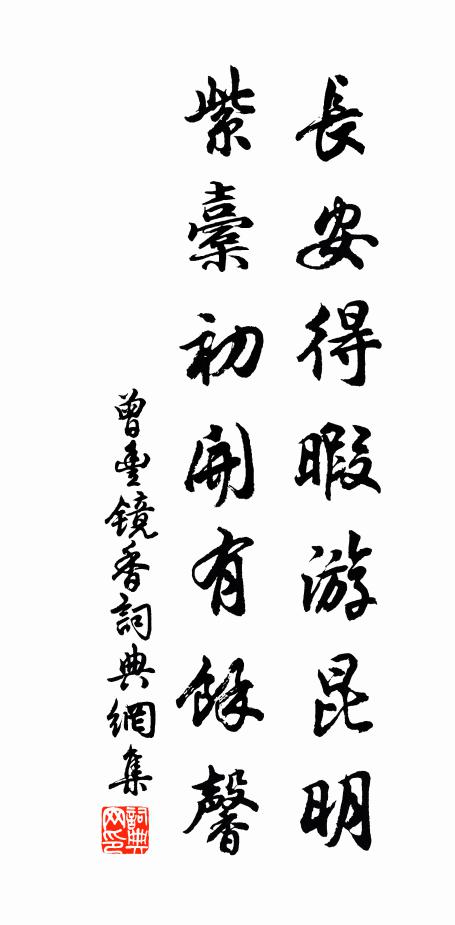 長安得暇游昆明
紫橐初開有餘馨
曾豐鏡香詞典網集
詞典
网印